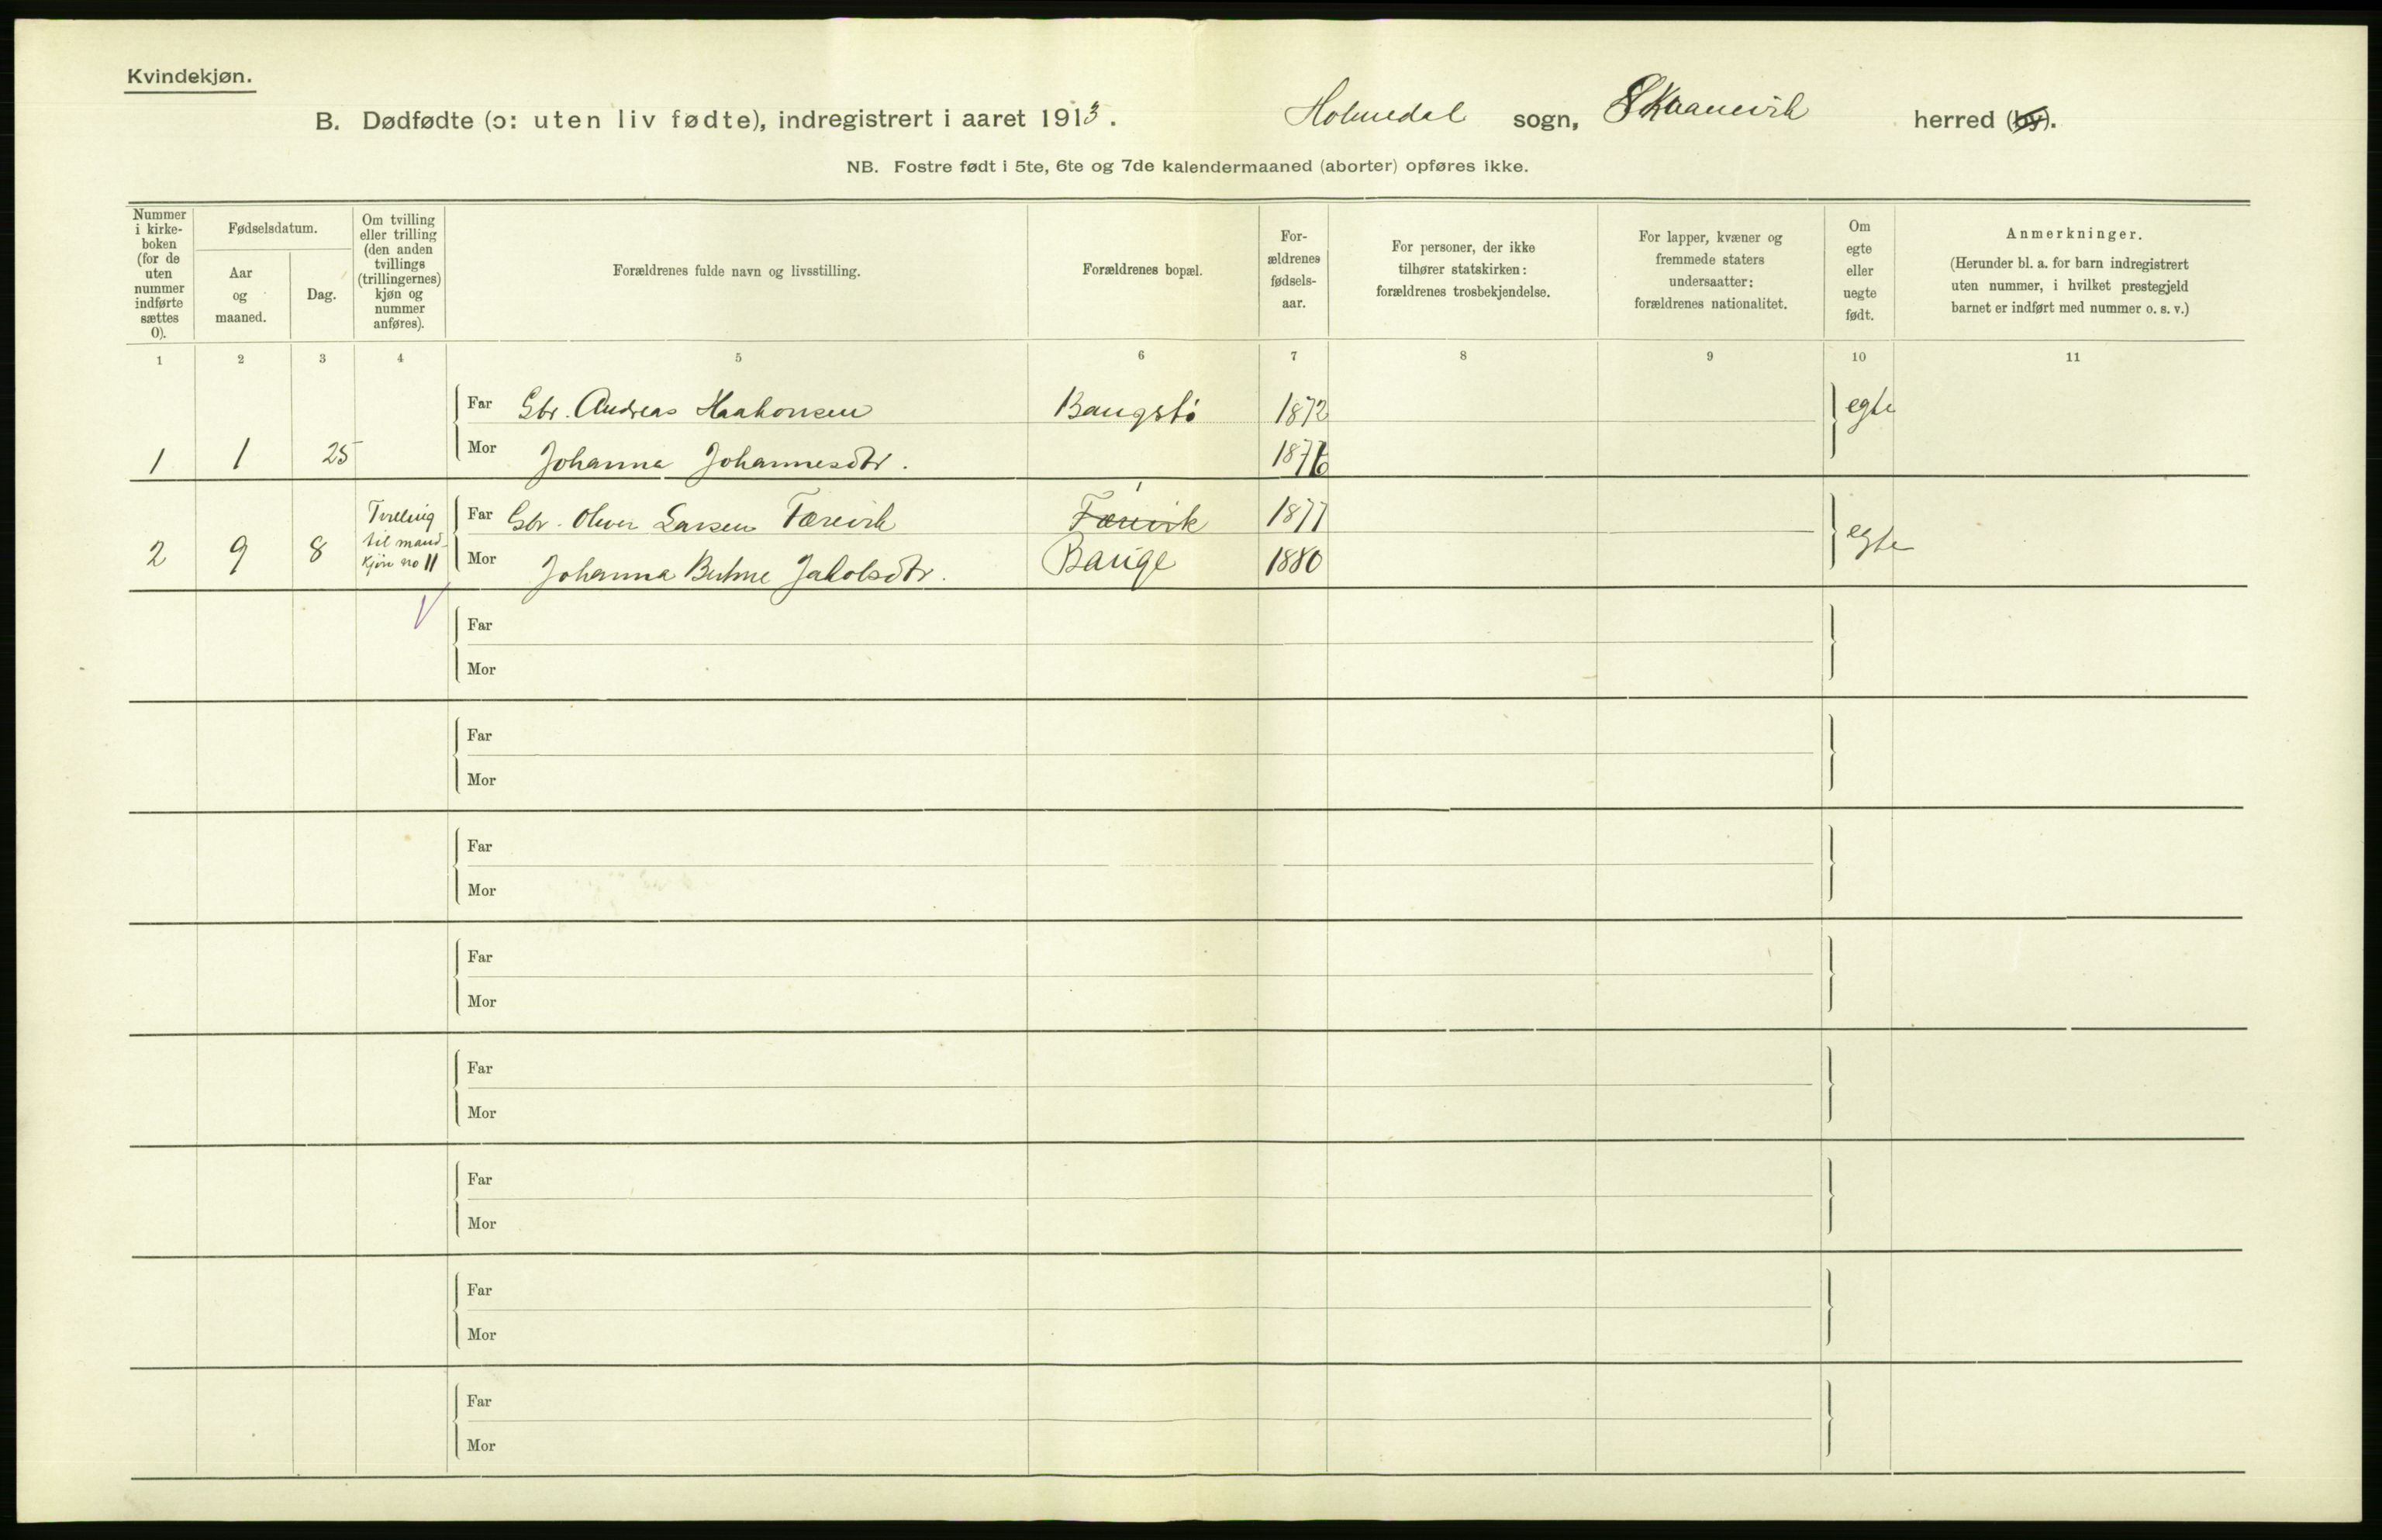 Kvindekjøn.
B. Dødfødte (ɔ: uten liv fødte), indregistrert i aaret 1913. Holmedal sogn, Skaanevik herred (by).
NB. Fostre født i 5te, 6te og 7de kalendermaaned (aborter) opføres ikke.
Nummer
i kirke-
boken
(for de
uten
nummer
indførte
sættes
0).
Fødselsdatum.
Aar
og
maaned.
Dag.
Om tvilling
eller trilling
(den anden
tvillings
(trillingernes)
kjøn og
nummer
anføres).
Forældrenes fulde navn og livsstilling.
Forældrenes bopæl.
For-
ældrenes
fødsels-
aar.
For personer, der ikke
tilhører statskirken:
forældrenes trosbekjendelse.
For lapper, kvæner og
fremmede staters
undersaatter:
forældrenes nationalitet.
Om
egte
eller
uegte
født.
Anmerkninger.
(Herunder bl. a. for barn indregistrert
uten nummer, i hvilket prestegjeld
barnet er indført med nummer o. s. v.)
1 2 3 4 5 6 7 8 9 10 11
Far Gbr. Andreas Haakonsen Baugstø 1872 egte
1 1 25 Mor Johanna Johannesdtr. 1876
Tvilling
til mand-
kjøn no 11
Far Gbr. Oliver Larsen Færevik Færevik 1877
2 9 8 Mor Johanna Jakobsdtr. Bauge 1880 egte
Far
Mor
Far
Mor
Far
Mor
Far
Mor
Far
Mor
Far
Mor
Far
Mor
Far
Mor